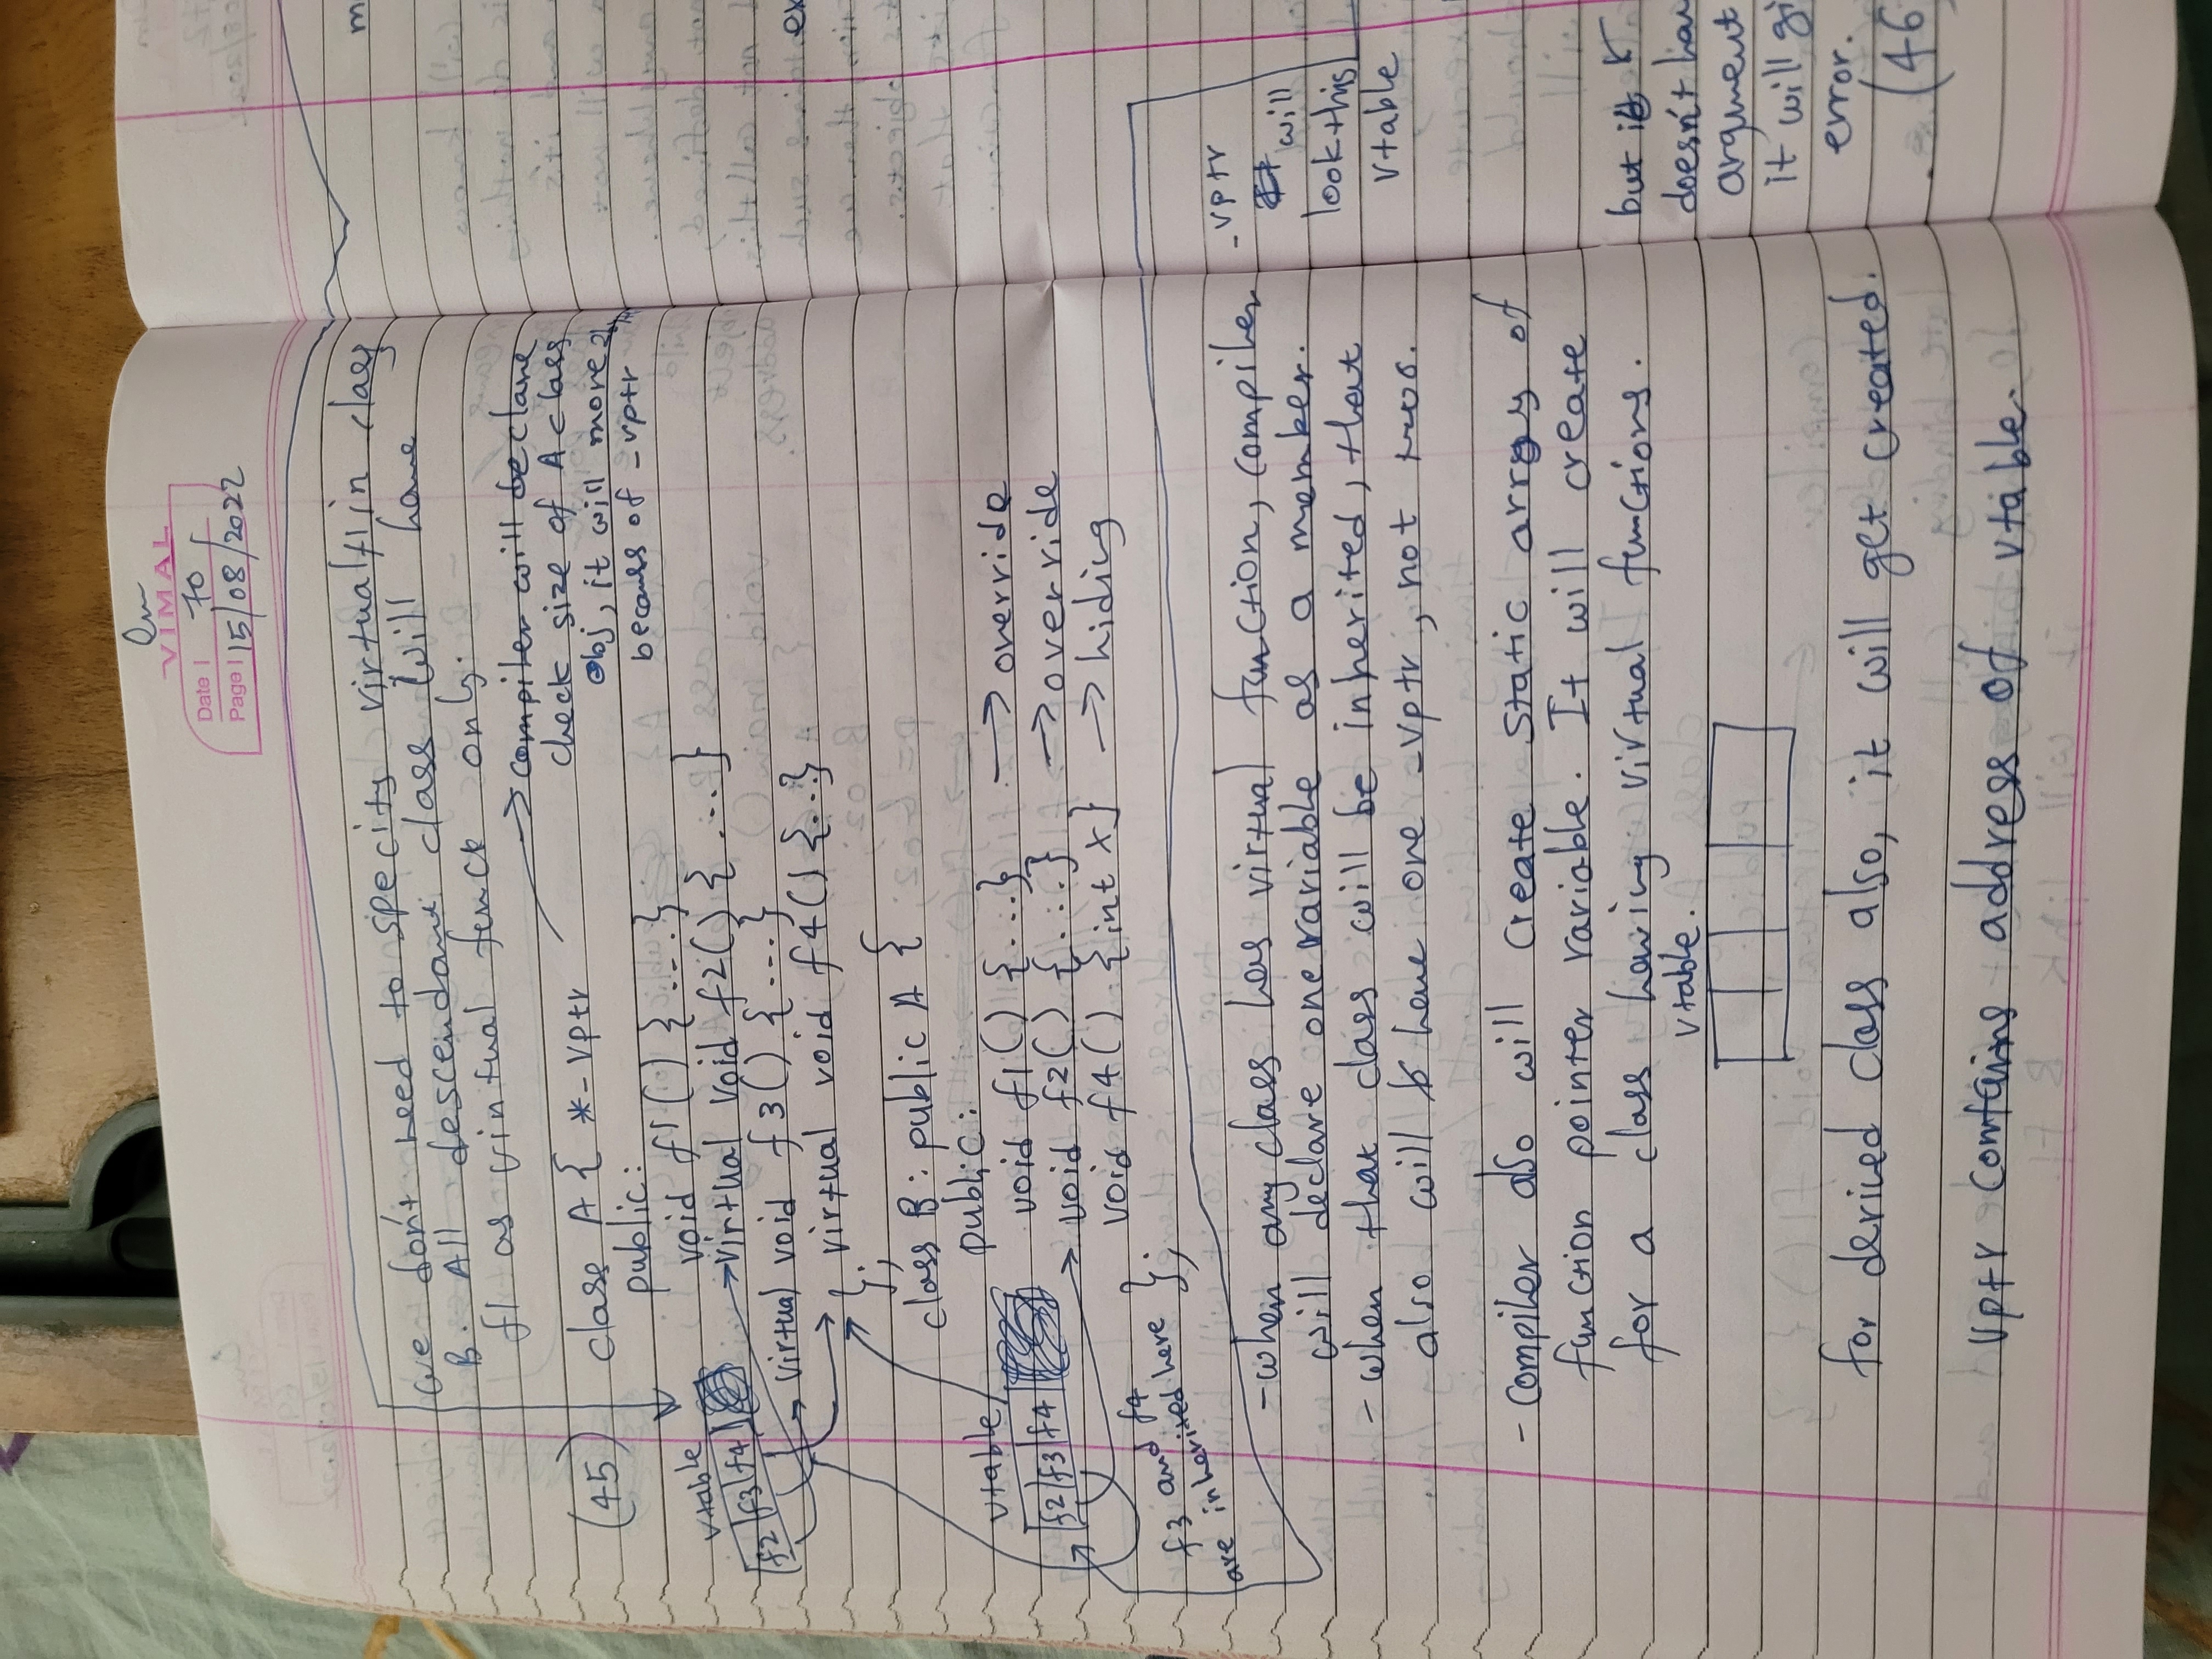 Om
VIMAL
Date | 70
Page | 15/08/2022
we don't need to specity virtual f1 in class
B. All descendant class will have
f1 as virtual funck only.
compiler will declare
check size of A class
Obj, it will more
becauss of -vptr
(45) class A { *-vptr
public:
void f1() {....}
vtable
f2 f3 f4
virtual void f2() {...}
virtual void f3() {...}
virtual void f4() {...}
};
class B: public A {
public:
vtable
f2 f3 f4
void f1() {...} → override
void f2() {...} → override
void f4() {int x} → hiding
};
f3 and f4
are inherited here
- when any class has virtual function, compiler
will declare one variable as a member.
- when that class will be inherited, that
also will have one -vptr, not two.
- compiler also will create static array of
function pointer variable. It will create
for a class having virtual functions.
vtable.
for derived class also, it will get created.
vptr contains address of vtable.
m
ex
-vptr
will
look this
vtable
but it
doesn't hav
argument
it will gi
error.
(46